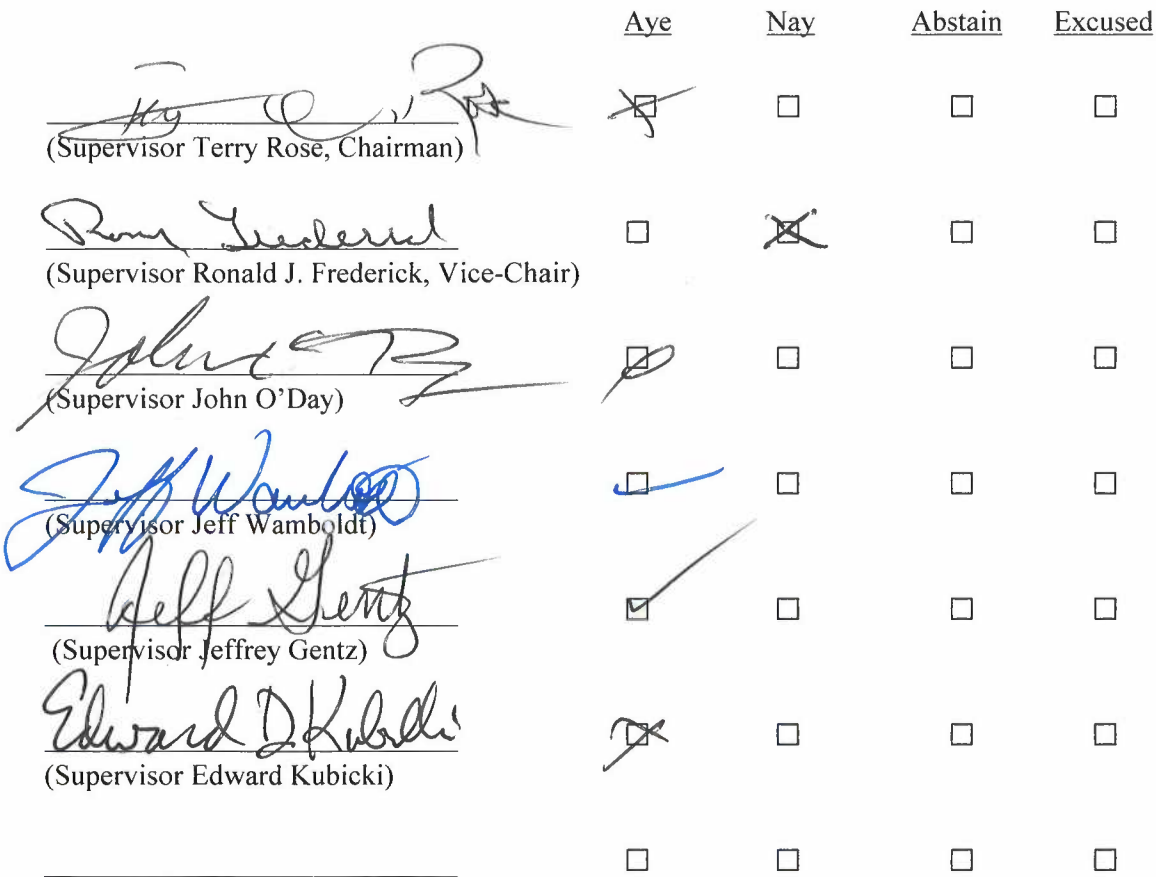 Aye Nay Abstain Excused
(Supervisor Terry Rose, Chairman)
(Supervisor Ronald J. Frederick, Vice-Chair)
John
(Supervisor John O'Day)
Jeff Wamboldt
(Supervisor Jeff Wamboldt)
Jeff Gentz
(Supervisor Jeffrey Gentz)
Edward D. Kubicki
(Supervisor Edward Kubicki)